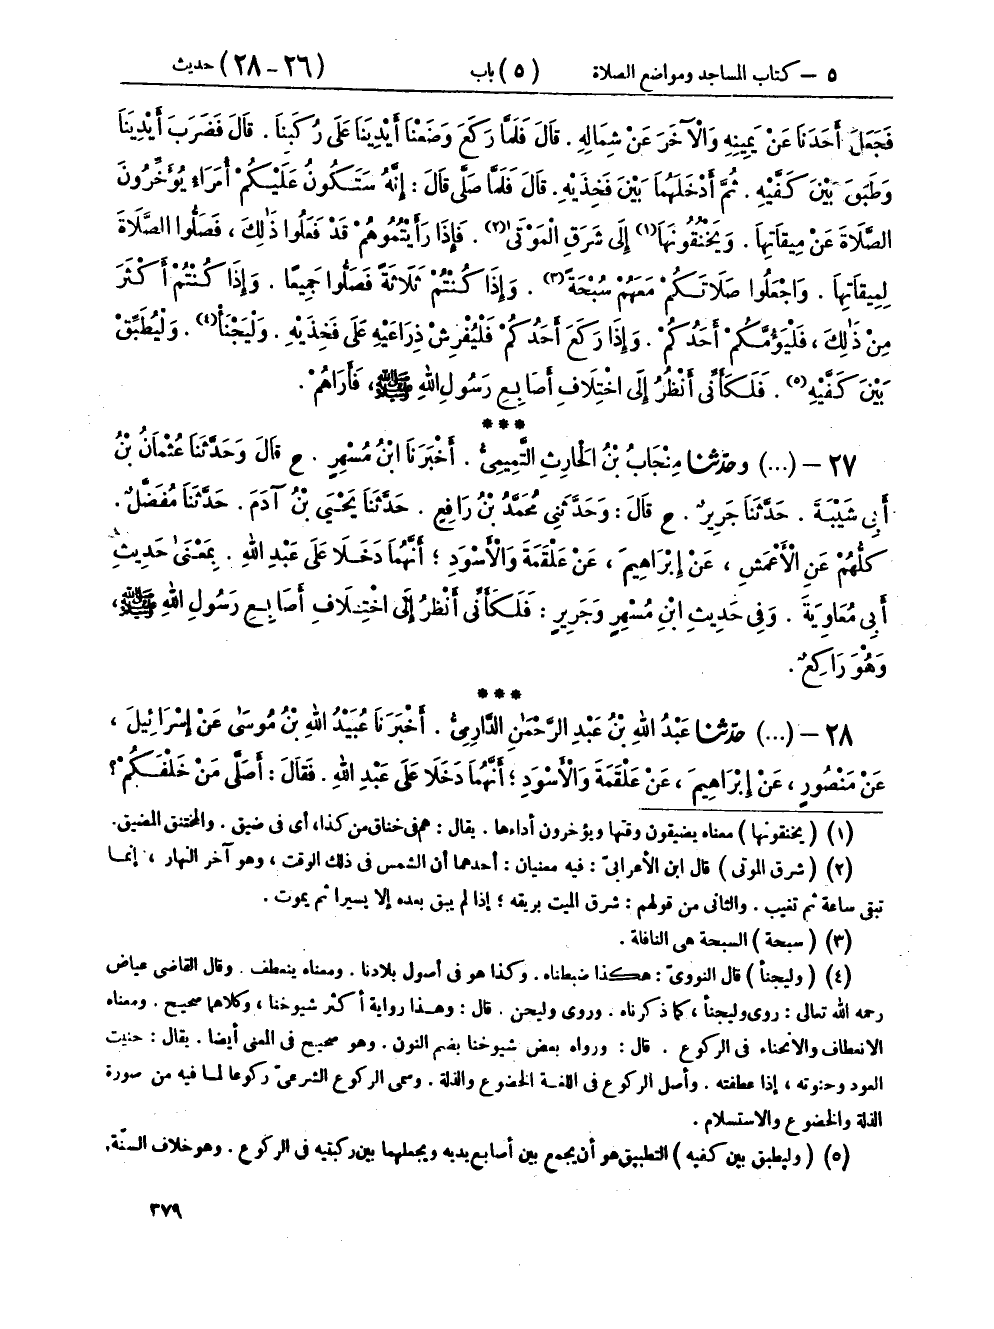 ٥ - كتاب المساجد ومواضع الصلاة (٥) باب (٢٦-٢٨) حديث
فَجَعَلَ أَحَدَنَا عَنْ يَمِينِهِ وَالْآخَرَ عَنْ شِمَالِهِ . قَالَ فَلَمَّا رَكَعَ وَضَعْنَا أَيْدِيَنَا عَلَى رُكَبِنَا . قَالَ فَضَرَبَ أَيْدِيَنَا
وَطَبَّقَ بَيْنَ كَفَّيْهِ . ثُمَّ أَدْخَلَهُمَا بَيْنَ فَخِذَيْهِ . قَالَ فَلَمَّا صَلَّى قَالَ : إِنَّهُ سَتَكُونُ عَلَيْكُمْ أُمَرَاءُ يُؤَخِّرُونَ
الصَّلَاةَ عَنْ مِيقَاتِهَا . وَيَخْنُقُونَهَا(١) إِلَى شَرَقِ الْمَوْتَى(٢) . فَإِذَا رَأَيْتُمُوهُمْ قَدْ فَعَلُوا ذَٰلِكَ ، فَصَلُّوا الصَّلَاةَ
لِمِيقَاتِهَا . وَاجْعَلُوا صَلَاتَكُمْ مَعَهُمْ سُبْحَةً(٣) . وَإِذَا كُنْتُمْ ثَلَاثَةً فَصَلُّوا جَمِيعًا . وَإِذَا كُنْتُمْ أَكْثَرَ
مِنْ ذَٰلِكَ ، فَلْيَؤُمَّكُمْ أَحَدُكُمْ . وَإِذَا رَكَعَ أَحَدُكُمْ فَلْيُفْرِشْ ذِرَاعَيْهِ عَلَى فَخِذَيْهِ . وَلْيَجْنَأْ(٤) . وَلْيُطَبِّقْ
بَيْنَ كَفَّيْهِ(٥) . فَلَكَأَنِّي أَنْظُرُ إِلَى اخْتِلَافِ أَصَابِعِ رَسُولِ اللهِ ﷺ ، فَأَرَاهُمْ .
***
٢٧ - (...) وحَدَّثَنَا مِنْجَابُ بْنُ الْحَارِثِ التَّمِيمِيُّ . أَخْبَرَنَا ابْنُ مُسْهِرٍ . ح قَالَ وَحَدَّثَنَا عُثْمَانُ بْنُ
أَبِي شَيْبَةَ . حَدَّثَنَا جَرِيرٌ . ح قَالَ : وَحَدَّثَنِي مُحَمَّدُ بْنُ رَافِعٍ . حَدَّثَنَا يَحْيَىٰ بْنُ آدَمَ . حَدَّثَنَا مُفَضَّلٌ .
كُلُّهُمْ عَنِ الْأَعْمَشِ ، عَنْ إِبْرَاهِيمَ ، عَنْ عَلْقَمَةَ وَالْأَسْوَدِ ؛ أَنَّهُمَا دَخَلَا عَلَى عَبْدِ اللهِ . بِمَعْنَىٰ حَدِيثِ
أَبِي مُعَاوِيَةَ . وَفِي حَدِيثِ ابْنِ مُسْهِرٍ وَجَرِيرٍ : فَلَكَأَنِّي أَنْظُرُ إِلَى اخْتِلَافِ أَصَابِعِ رَسُولِ اللهِ ﷺ ،
وَهُوَ رَاكِعٌ .
***
٢٨ - (...) حَدَّثَنَا عَبْدُ اللهِ بْنُ عَبْدِ الرَّحْمَٰنِ الدَّارِمِيُّ . أَخْبَرَنَا عُبَيْدُ اللهِ بْنُ مُوسَىٰ عَنْ إِسْرَائِيلَ ،
عَنْ مَنْصُورٍ ، عَنْ إِبْرَاهِيمَ ، عَنْ عَلْقَمَةَ وَالْأَسْوَدِ ؛ أَنَّهُمَا دَخَلَا عَلَى عَبْدِ اللهِ . فَقَالَ : أَصَلَّى مَنْ خَلْفَكُمْ ؟
(١) ( يخنقونها ) معناه يضيقون وقتها ويؤخرون أداءها . يقال : هم فى خناق من كذا ، أى فى ضيق . والمختنق المضيق .
(٢) ( شرق الموتى ) قال ابن الأعرابىّ : فيه معنيان : أحدهما أن الشمس فى ذلك الوقت ، وهو آخر النهار ، إنما
تبقى ساعة ثم تغيب . والثانى من قولهم : شرق الميت بريقه ؛ إذا لم يبق بعده إلا يسيرا ثم يموت .
(٣) ( سبحة ) السبحة هى النافلة .
(٤) ( وليجنأ ) قال النووىّ : هكذا ضبطناه . وكذا هو فى أصول بلادنا . ومعناه ينعطف . وقال القاضى عياض
رحمه الله تعالى : روى وليجنأ ، كما ذكرناه . وروى وليحن . قال : وهذا رواية أكثر شيوخنا ، وكلاهما صحيح . ومعناه
الانعطاف والانحناء فى الركوع . قال : ورواه بعض شيوخنا بضم النون . وهو صحيح فى المعنى أيضا . يقال : حنيت
العود وحنوته ، إذا عطفته . وأصل الركوع فى اللغة الخضوع والذلة . وسمى الركوع الشرعىّ ركوعا لما فيه من صورة
الذلة والخضوع والاستسلام .
(٥) ( وليطبق بين كفيه ) التطبيق هو أن يجمع بين أصابع يديه ويجعلهما بين ركبتيه فى الركوع . وهو خلاف السنّة .
٣٧٩